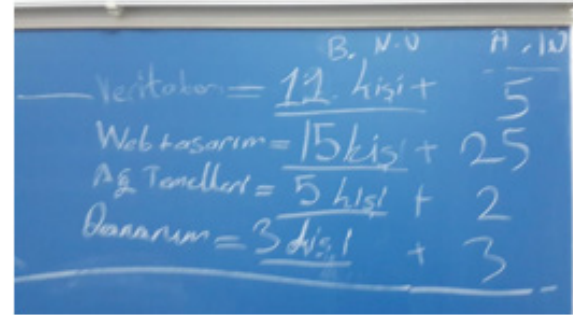 B. N.O A.IN
Veritaban = 11. kişi + 5
Web tasarım = 15 kişi + 25
Ağ Temelleri = 5 kişi + 2
Donanım = 3 kişi + 3